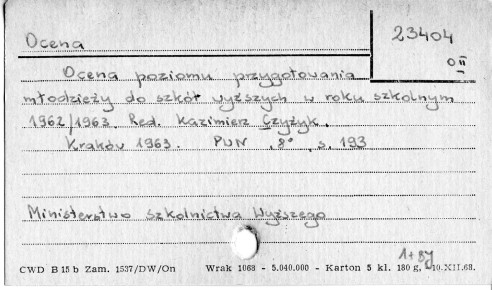 Ocena
23404
0 II
Ocena poziomu przygotowania
młodzieży do szkół wyższych w roku szkolnym
1962/1963. Red. Kazimierz Czyżyk.
Kraków 1963. PWN , 8° , s. 193
Ministerstwo szkolnictwa Wyższego
1+8y
CWD B 15 b Zam. 1537/DW/On Wrak 1068 - 5.040.000 - Karton 5 kl. 180 g, 10.XII.68.